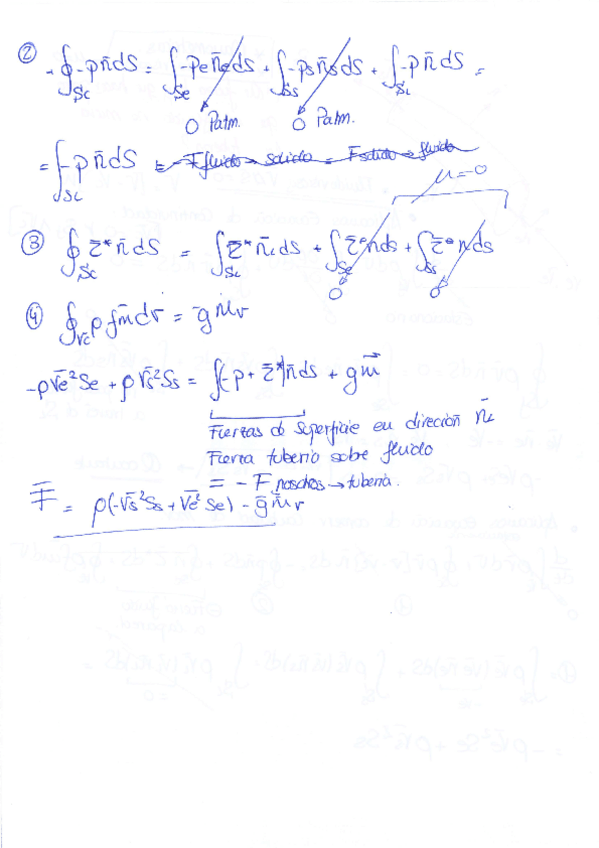 ② - ∮_Sc -p n̄ dS = ∫_Se -pe n̄e ds + ∫_Ss -ps n̄s dS + ∫_SL -p n̄ dS =
0 Patm. 0 Patm.
= ∫_SL -p n̄ dS = - F fluido → solido = F solido → fluido
μ=0
③ ∮_Sc τ̄* n̄ dS = ∫_SL τ̄* n̄L dS + ∫_Se τ̄* n ds + ∫_Ss τ̄* n ds
0 0
④ ∮_Vc ρ f̄m dv = ḡ Mv
-ρ V̄e² Se + ρ V̄s² Ss = ∫(-p + τ̄*) n̄ ds + g m̄
Fuerzas de Superficie en direción n̄L
Fuerza tuberia sobre fluido
= - F → tuberia.
F̄ = ρ(-V̄s² Ss + V̄e² Se) - ḡ Mv